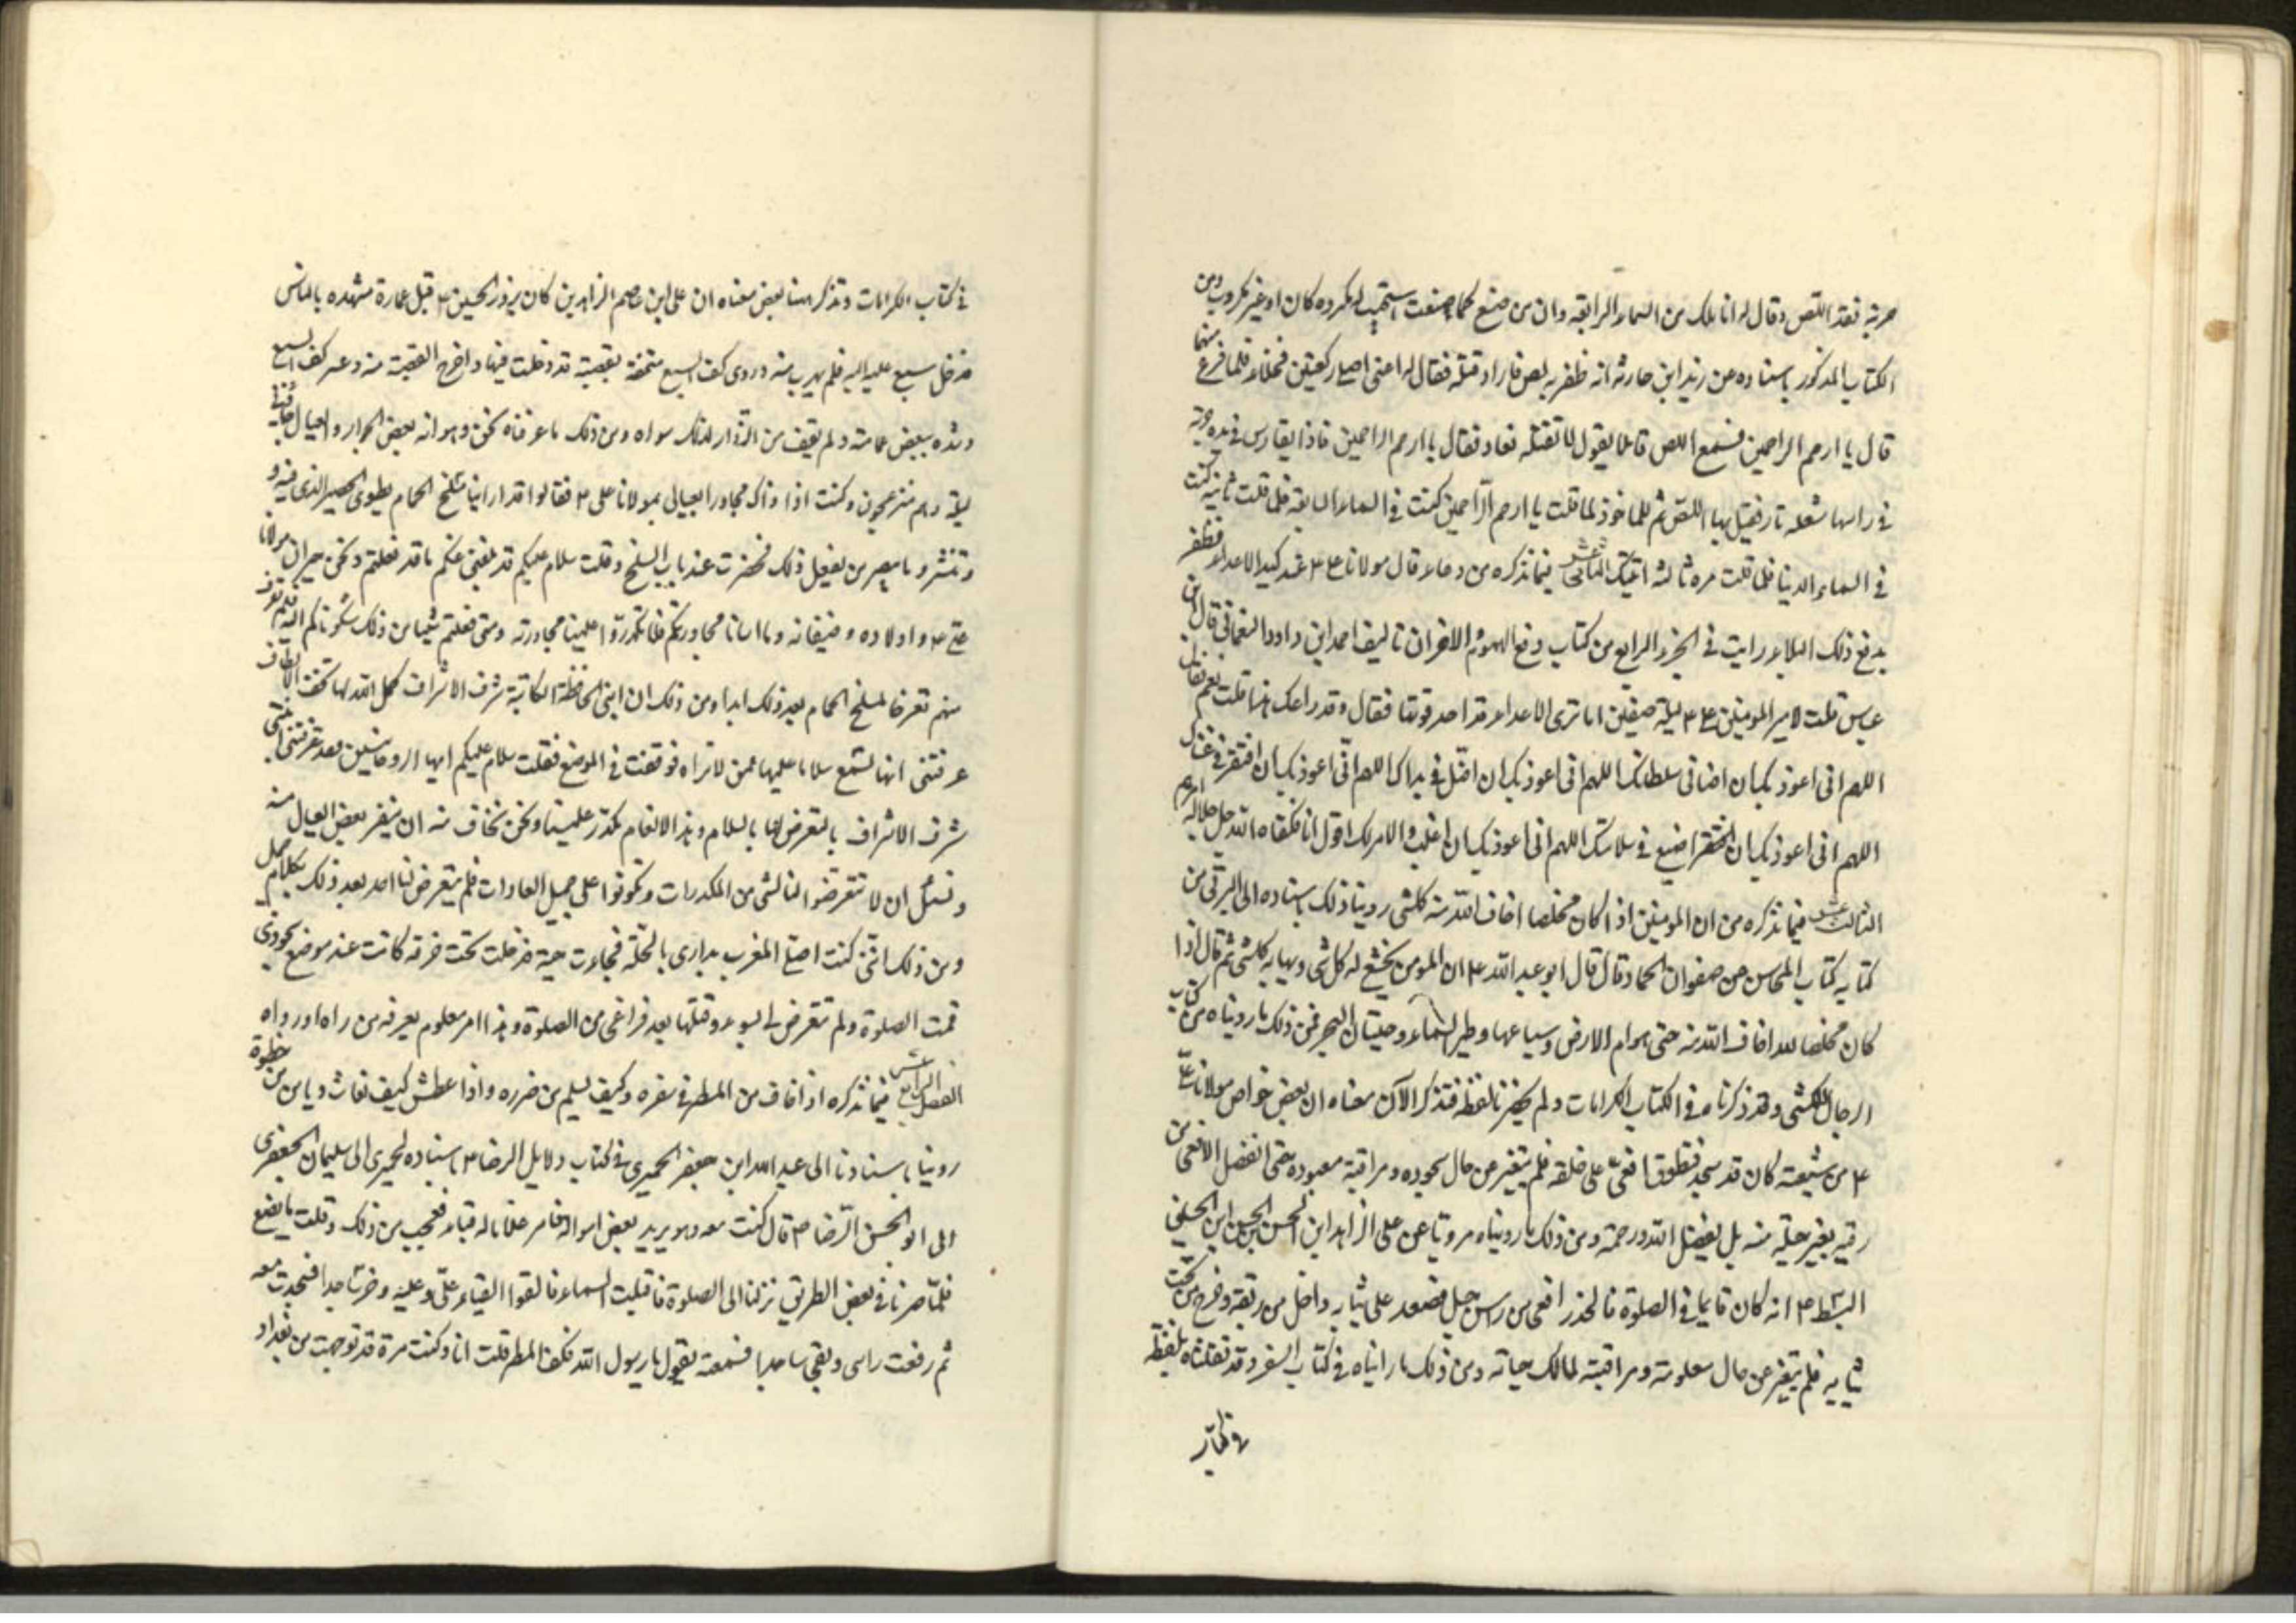 حربة فقد اللص وقال له انا ملك من السماء الرابعة وان من صنع كما صنعت استجيب له مكروه كان او غير مكروب ومن
الكتاب المذكور باسناده عن زيد ابن حارثه انه ظفر به لص فاراد قتله فقال له اعنى اصلى ركعتين فخلاه فلما فرغ منهما
قال يا ارحم الراحمين فسمع اللص قائلا يقول لا تقتله فعاد فقال يا ارحم الراحمين فاذا بفارس فى يده حربة
فى راسها شعله نار فقتل بها اللص ثم قال لما قلت يا ارحم الراحمين كنت فى السماء السابعة فلما قلت ثانية كنت
فى السماء الدنيا فلما قلت مره ثالثه اتيتك الثانى عشر فيما نذكره من دعاء قال مولانا على ع عند كيد الاعداء فظفر
بدفع ذلك البلاء رايت فى الجزء الرابع من كتاب دفع الهموم والاحزان تاليف احمد ابن داود النعمانى قال ابن
عباس قلت لامير المومنين ع ليلة صفين اما ترى الاعداء قد احدقوا بنا فقال وقد راعك هذا قلت نعم فقال
اللهم انى اعوذ بك ان اضام فى سلطانك اللهم انى اعوذ بك ان اضل فى هداك اللهم انى اعوذ بك ان افتقر فى غناك
اللهم انى اعوذ بك ان اضيع فى سلامتك اللهم انى اعوذ بك ان اغلب والامر لك اقول انا فكفاه الله جل جلاله امرهم
الثالث عشر فيما نذكره من ان المومنين اذا كان مخلصا اخاف الله منه كلشى روينا ذلك باسناده الى البرقى من
كتابه كتاب المحاسن عن صفوان الجمال قال قال ابو عبد الله ع ان المومن يخشع له كل شى ويهابه كلشى ثم قال اذا
كان مخلصا لله اخاف الله منه حتى هوام الارض وسباعها وطير السماء وحيتان البحر فمن ذلك ما رويناه من كتاب
الرجال للكشى وقد ذكرناه فى الكتاب الكرامات ولم يحضرنا لفظه فنذكر الآن معناه ان بعض خواص مولانا على
ع من شيعته كان قد سجد فتطوق افعى على حلقه فلم يتغير عن حال سجوده ومراقبة معبوده حتى انفصل الافعى من
رقبته بغير حيلة منه بل بفضل الله ورحمته ومن ذلك ما رويناه مرويا عن على الزاهد ابن الحسن ابن الحسن ابن الحسن
السبط ع انه كان قائما فى الصلوة فانحدر افعى من راس جبل فصعد على ثيابه ودخل من زيقه وخرج من تحت
ثيابه فلم يتغير عن حال صلوته ومراقبته لمالك حياته ومن ذلك ما رايناه فى كتاب السفر وقد نقلناه بلفظه
فى كتاب
فى كتاب الكرامات ونذكر هنا بعض معناه ان على ابن عاصم الزاهد كان يزور الحسين ع قبل عمارة مشهده بالناس
فدخل سبع عليه اليه فلم يهرب منه وراى كف السبع منتفخة بقصبة قد دخلت فيها واخرج القصبة منه وعصر كف السبع
وشده ببعض عمامته ولم يقف من الزوار لذلك سواه ومن ذلك ما عرفناه نحن وهو انه بعض الجوار والعيال جائنى
ليلة وهم منزعجون وكنت اذ ذاك مجاورا بعيالى بمولانا على ع فقالوا قد راينا مسلخ الحمام يطوى الحصير الذى فيه و
وتنشر وما نبصر من يفعل ذلك فحضرت عند باب المسلخ وقلت سلام عليكم قد بلغنى عنكم ما قد فعلتم ونحن جيران مولانا
على ع واولاده وضيفانه وما اسانا مجاورتكم فلا تكدروا علينا مجاورته ومتى فعلتم شيئا من ذلك شكوناكم اليه فلم نعرف
منهم تعرضا لمسلخ الحمام بعد ذلك ابدا ومن ذلك ان ابنتى الحافظة الكاتبة شرف الاشراف كمل الله لها تحف الالطاف
عرفتنى انها تسمع سلاما عليها ممن لا تراه فوقفت فى الموضع فقلت سلام عليكم ايها الروحانيين فقد عرفتنى ابنتى
شرف الاشراف بالتعرض لها بالسلام وهذا الانعام مكدر علينا ونحن نخاف منه ان ينفر بعض العيال منه
ونسئل ان لا تتعرضوا لنا لشى من المكدرات وتكونوا على جميل العادات فلم يتعرض لها احد بعد ذلك بكلام جميل
ومن ذلك اننى كنت اصلى المغرب بدارى بالحلة فجاءت حية فدخلت تحت خرقة كانت عند موضع سجودى
تمت الصلوة ولم تتعرض لى بسوء وقتلتها بعد فراغى من الصلوة وهذا امر معلوم يعرفه من راه او رواه
الفصل الرابع عشر فيما نذكره اذا خاف من المطر فى سفره وكيف يسلم من ضرره واذا عطش كيف يغاث ويامن من خطره
روينا باسنادنا الى عبد الله ابن جعفر الحميرى فى كتاب دلايل الرضا ع باسناده الحميرى الى سليمان الجعفرى
الى ابو الحسن الرضا ع قال كنت معه وهو يريد بعض امواله فامر غلاما له قباء فعجبت من ذلك وقلت ما يصنع
فلما صرنا فى بعض الطريق نزلنا الى الصلوة فاقبلت السماء فالقوا القباء على وعليه وخر ساجدا فسجدت معه
ثم رفعت راسى وبقى ساجدا فسمعته يقول يا رسول الله فكف المطر قلت انا وكنت مرة قد توجهت من بغداد